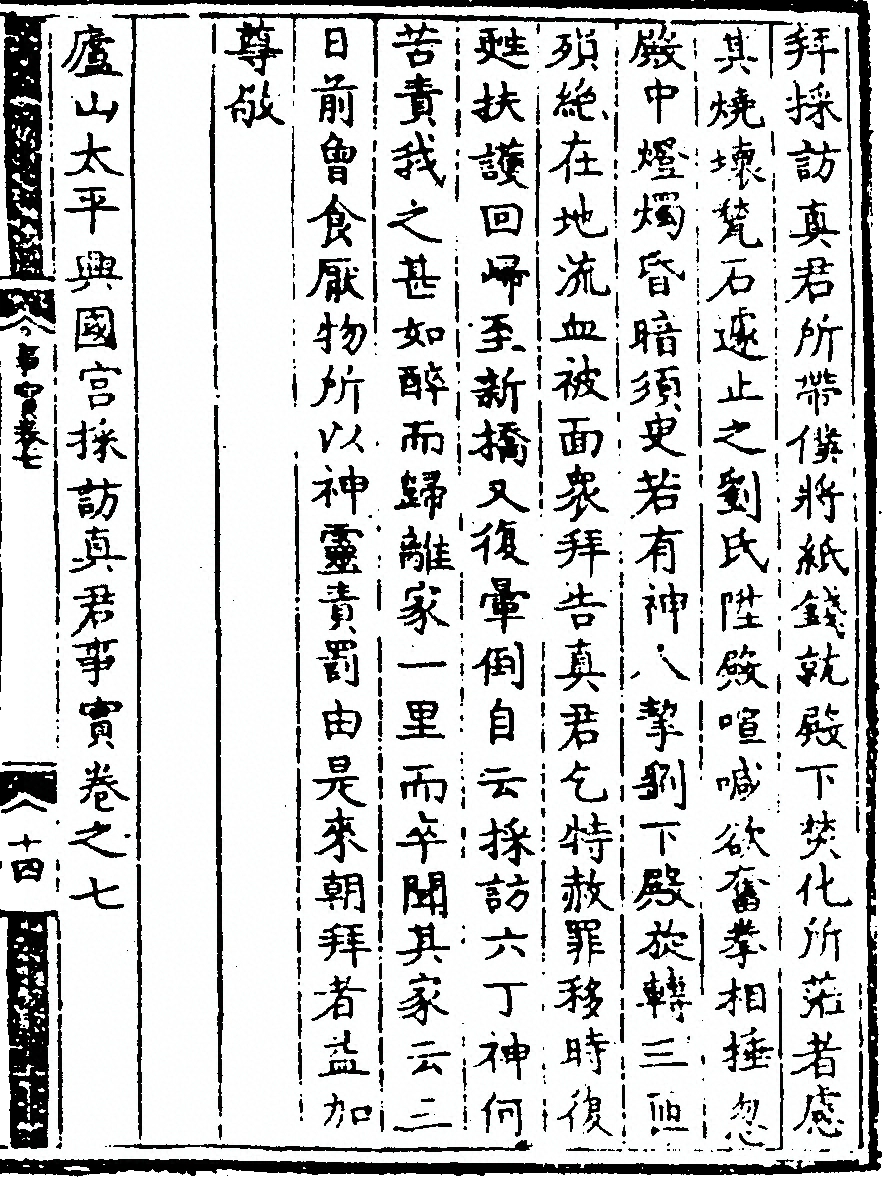 拜採訪真君所帶僕將紙錢就殿下焚化所莊者慮
其燒壞甃石遽止之劉氏陞殿喧喊欲奮拳相捶忽
殿中燈燭昏暗須臾若有神人挈劉下殿旋轉三匝
殞絶在地流血被面衆拜告真君乞特赦罪移時復
甦扶護回歸至新橋又復暈倒自云採訪六丁神何
苦責我之甚如醉而歸離家一里而卒聞其家云三
日前曾食厭物所以神靈責罰由是來朝拜者益加
尊敬
廬山太平興國宮採訪真君事實卷之七
事實卷七
十四